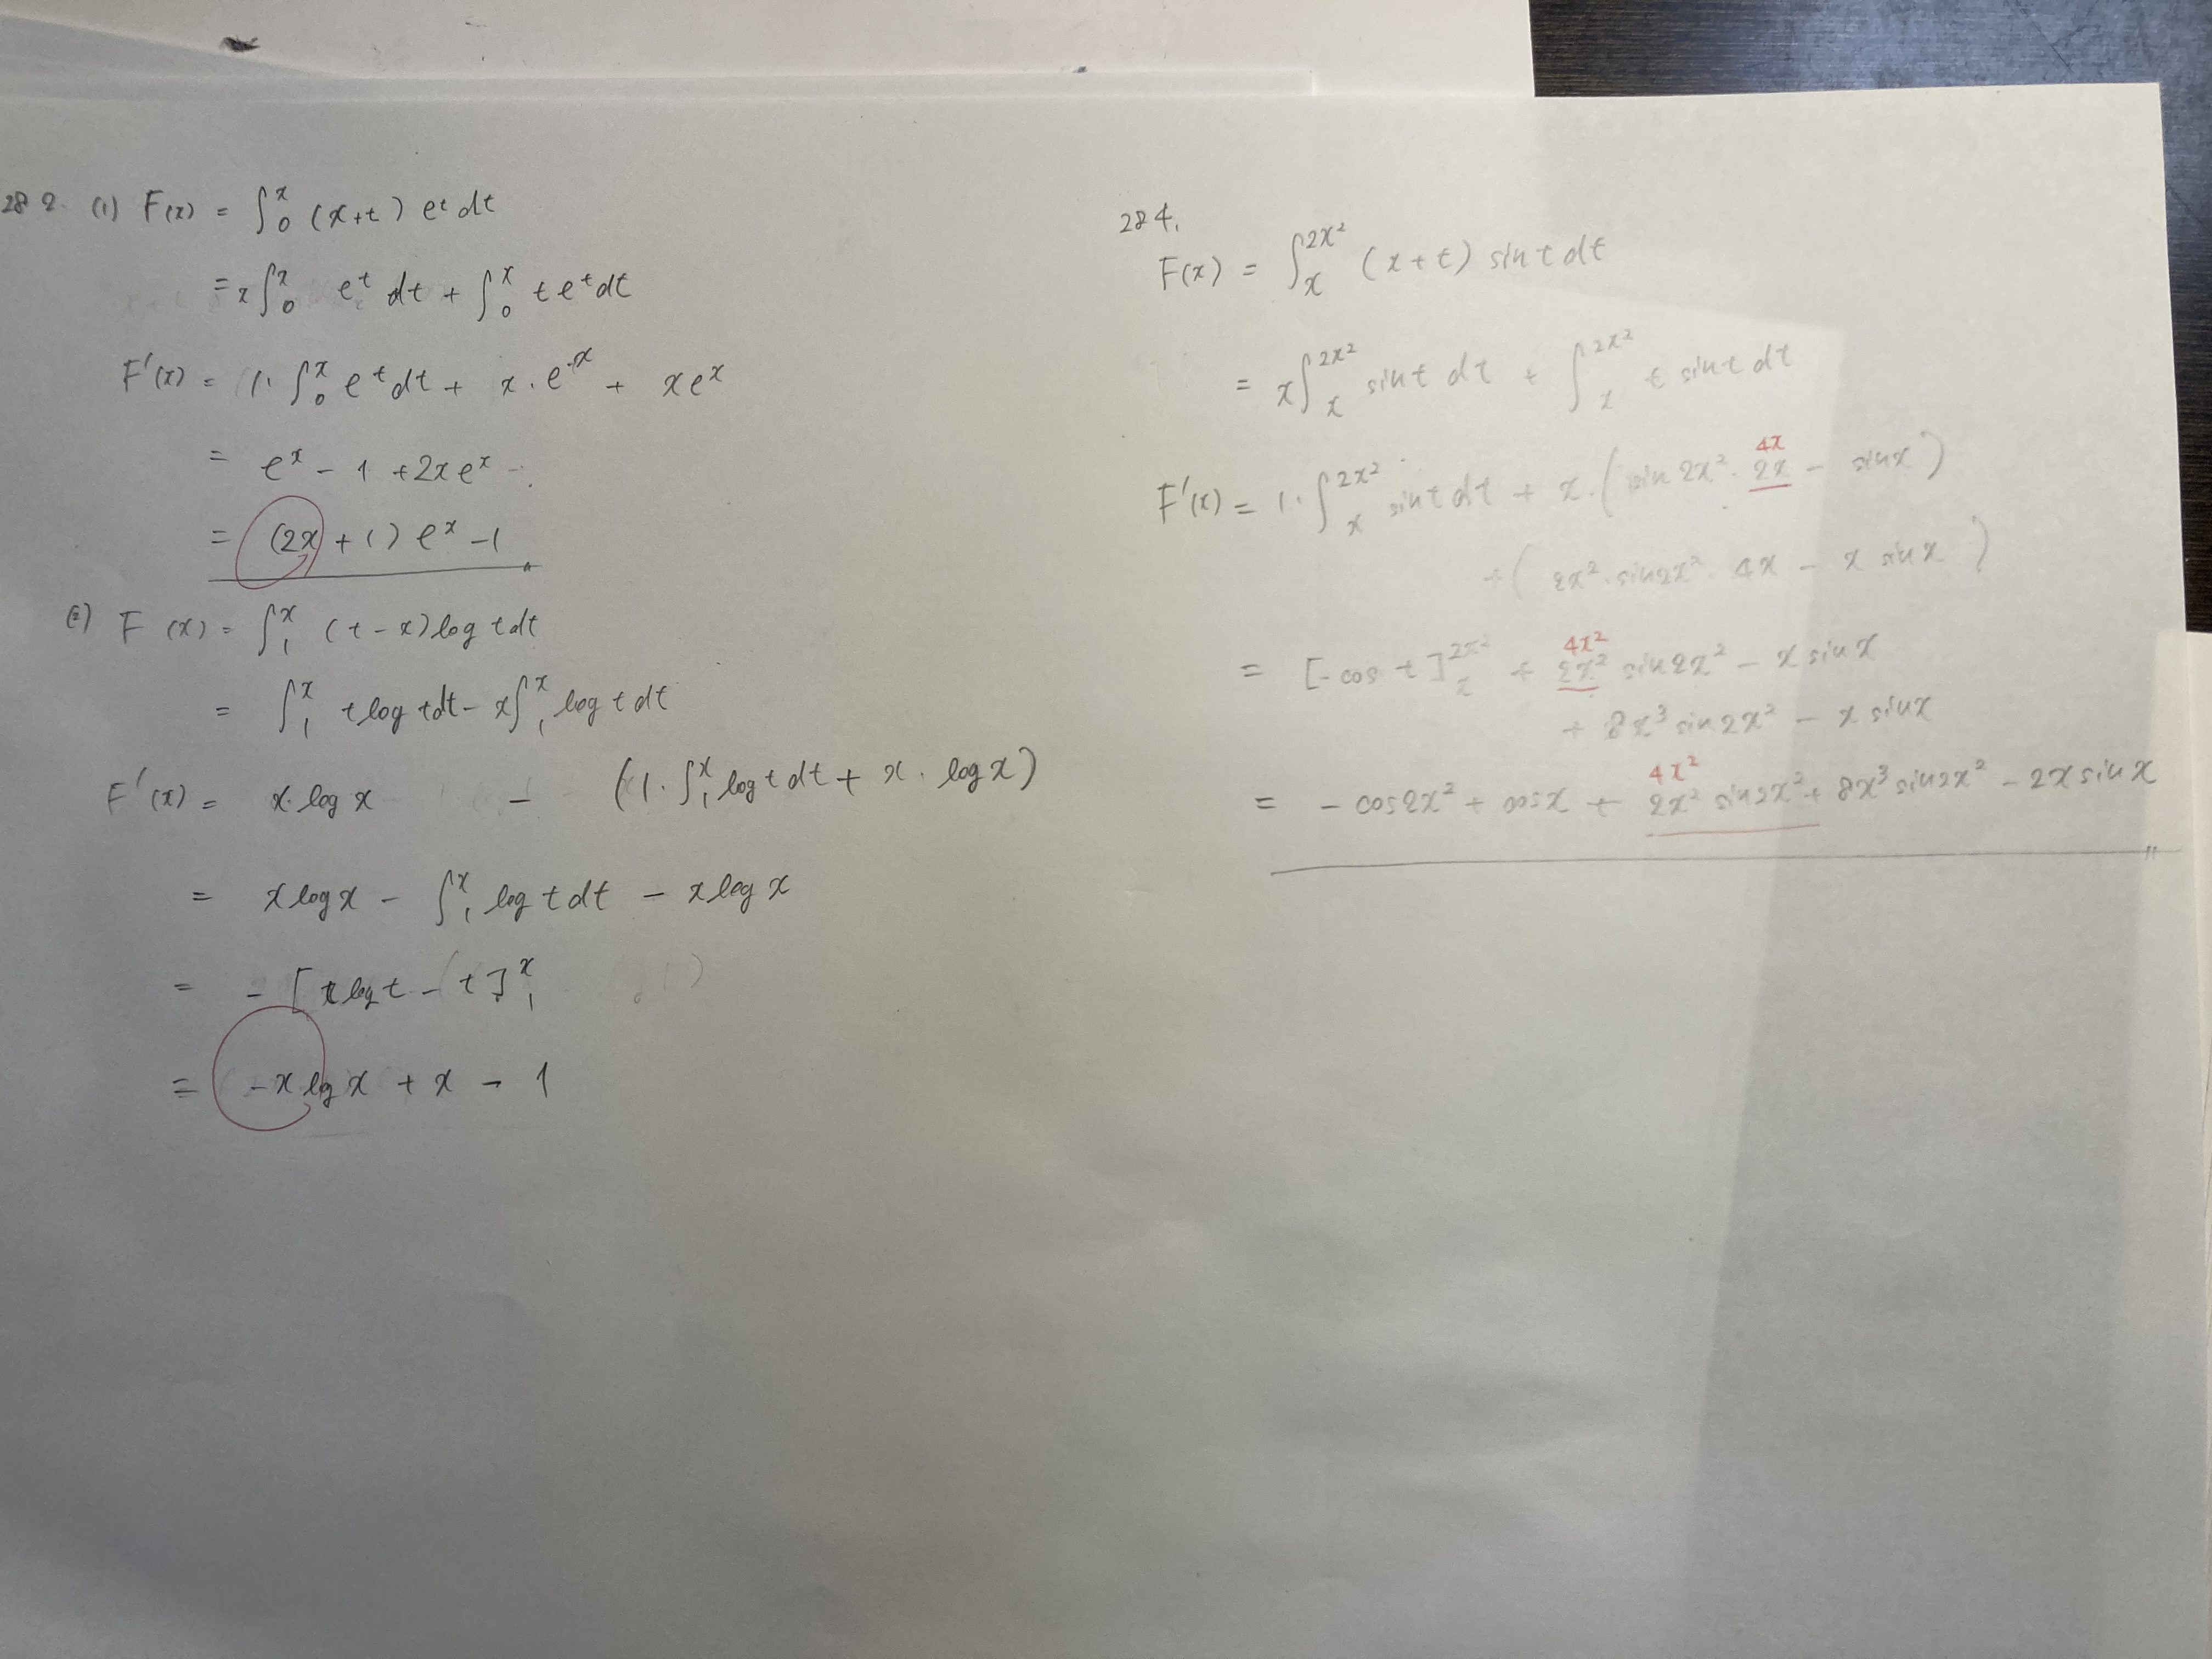 282. (1) F(x) = ∫₀ˣ (x+t) eᵗ dt
= x∫₀ˣ eᵗ dt + ∫₀ˣ t eᵗ dt
F'(x) = 1·∫₀ˣ eᵗ dt + x·eˣ + xeˣ
= eˣ - 1 + 2xeˣ
= (2x+1) eˣ - 1
(2) F(x) = ∫₁ˣ (t-x) log t dt
= ∫₁ˣ t log t dt - x∫₁ˣ log t dt
F'(x) = x·log x - (1·∫₁ˣ log t dt + x·log x)
= x log x - ∫₁ˣ log t dt - x log x
= -[t log t - t]₁ˣ
= -x log x + x - 1
284.
F(x) = ∫ₓ^{2x²} (x+t) sin t dt
= x∫ₓ^{2x²} sin t dt + ∫ₓ^{2x²} t sin t dt
4x
F'(x) = 1·∫ₓ^{2x²} sin t dt + x·(sin 2x²·2x - sin x)
+ (2x²·sin 2x²·4x - x sin x)
4x²
= [-cos t]ₓ^{2x²} + 2x² sin 2x² - x sin x
+ 8x³ sin 2x² - x sin x
4x²
= -cos 2x² + cos x + 2x² sin 2x² + 8x³ sin 2x² - 2x sin x